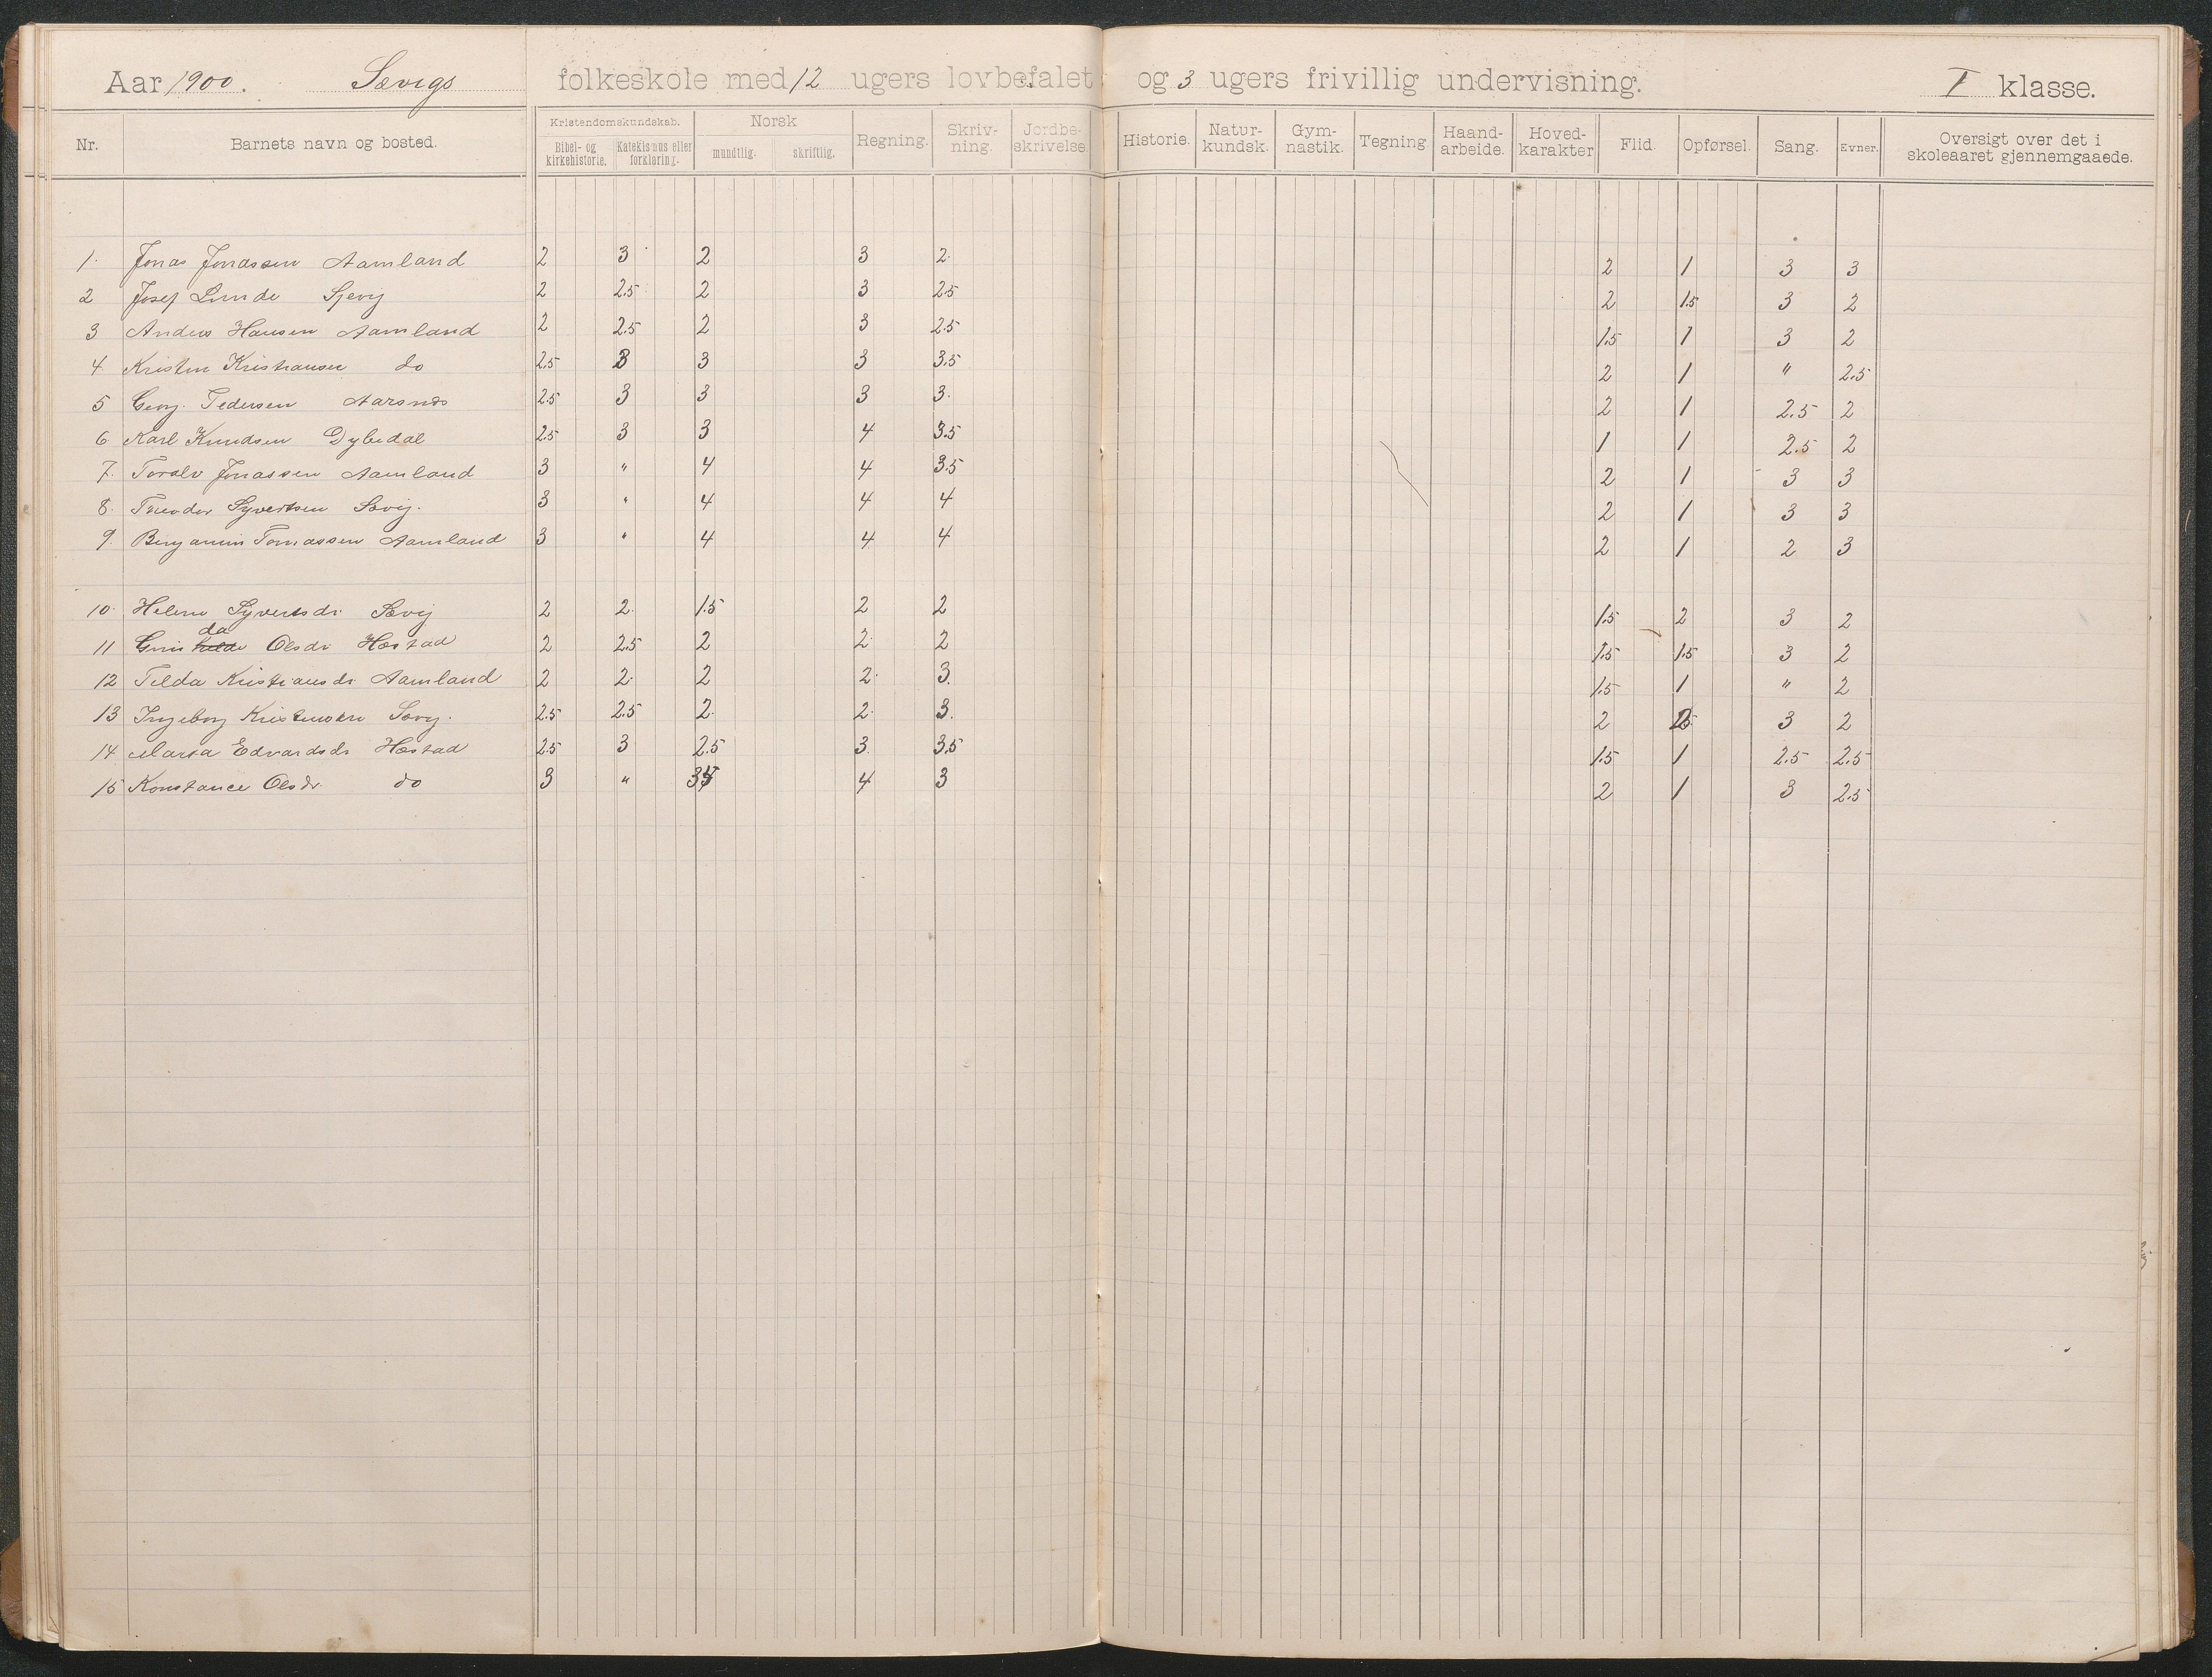 Aar 1900. Sævigs folkeskole med 12 ugers lovbefalet og 3 ugers frivillig undervisning. I klasse.
Nr. Barnets navn og bosted. Kristendomskundskab. Bibel- og kirkehistorie. Katekismus eller forklaring. Norsk mundtlig. skriftlig. Regning. Skriv-ning. Jordbe-skrivelse. Historie. Natur-kundsk. Gym-nastik. Tegning Haand-arbeide. Hoved-karakter Flid. Opførsel. Sang. Evner. Oversigt over det i skoleaaret gjennemgaaede.
1. Jonas Jonassen Aamland 2 3 2 3 2. 2 1 3 3
2 Josef Lunde Sjevig 2 2.5 2 3 2.5 2 1.5 3 2
3 Anders Hansen Aamland 2 2.5 2 3 2.5 1.5 1 3 2
4. Kristen Kristiansen do 2.5 3 3 3 3.5 2 1 " 2.5
5 Georg Pedersen Aarsnes 2.5 3 3 3 3. 2 1 2.5 2
6 Karl Knudsen Dybedal 2.5 3 3 4 3.5 1 1 2.5 2
7. Toralv Jonassen Aamland 3 " 4 4 3.5 2 1 3 3
8. Theodor Syvertsen Sævig. 3 " 4 4 4 2 1 3 3
9. Benjamin Tomassen Aamland 3 " 4 4. 4 2 1 2 3
10. Helene Syvertsdr. Sævig 2 2. 1.5 2 2 1.5 2 3 2
da
11 Olsdr Hæstad 2 2.5 2 2. 2 1.5 1.5 3 2
12 Tilda Kristiansdr Aamland 2 2. 2 2. 3. 1.5 1 " 2
13 Ingeborg Sævig. 2.5 2.5 2. 2. 3. 2 3 2
14 Marta Edvardsdr Hæstad 2.5 3 2.5 3. 3.5 1.5 1 2.5 2.5
15 Konstance Olsdr. do 3 " 4. 3 2 1 3 2.5